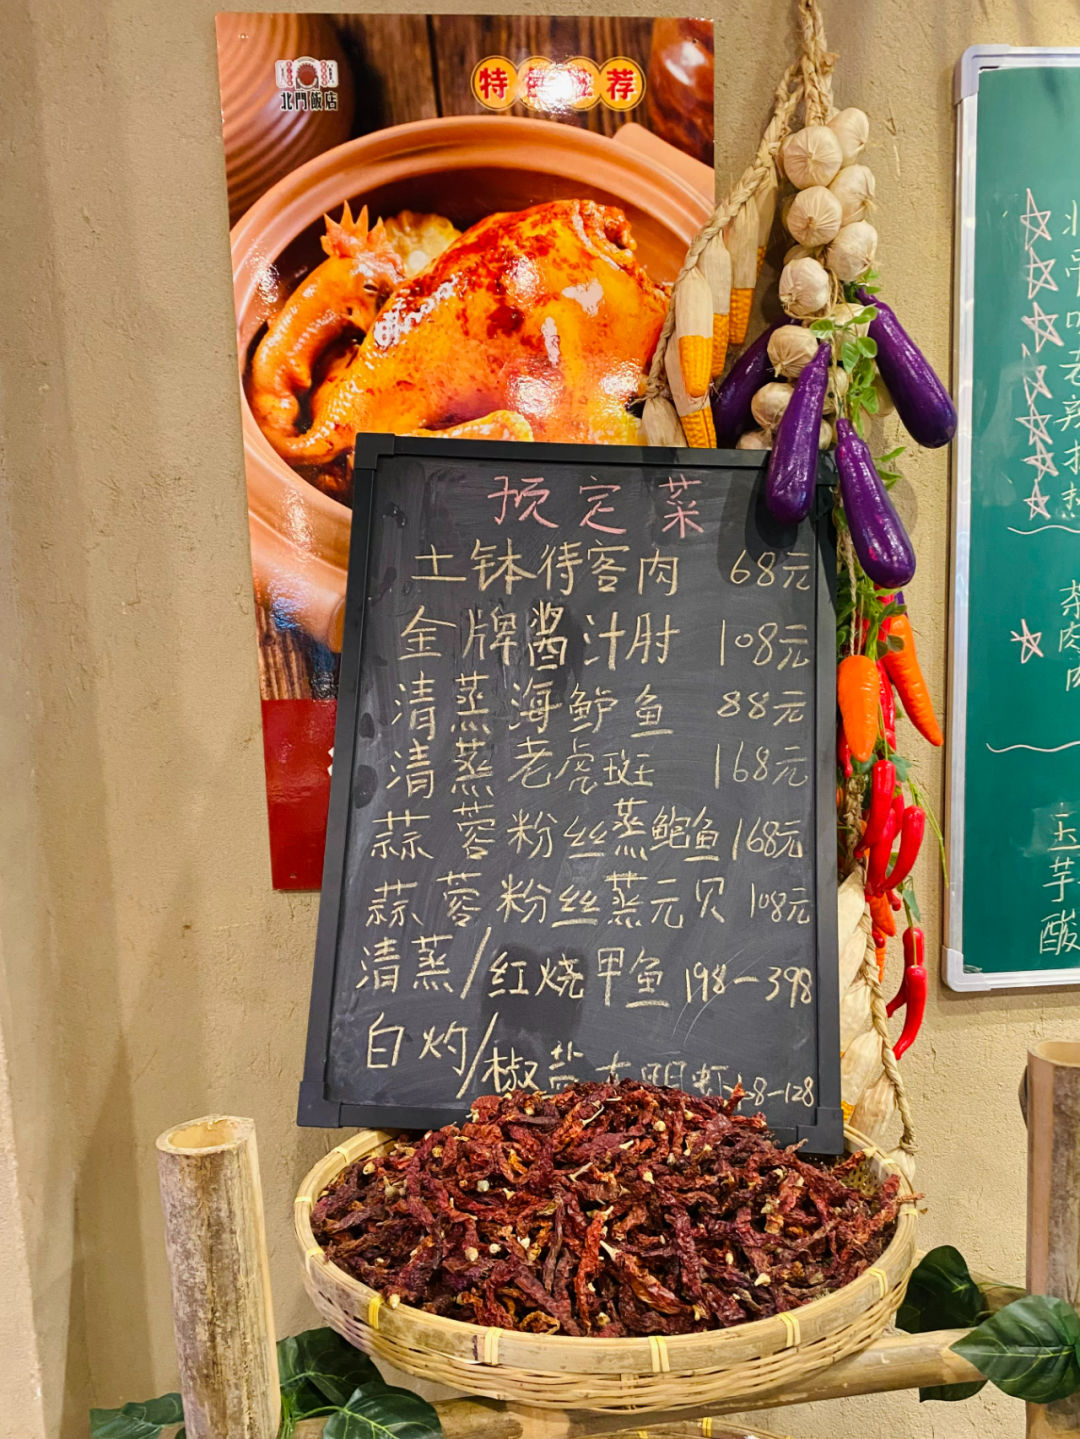 北門飯店
特 推荐
预定菜
土钵待客肉 68元
金牌酱汁肘 108元
清蒸海鲈鱼 88元
清蒸老虎斑 168元
蒜蓉粉丝蒸鲍鱼 168元
蒜蓉粉丝蒸元贝 108元
清蒸/红烧甲鱼 198-398
白灼/椒盐 明虾 -128
玉
芋
酸